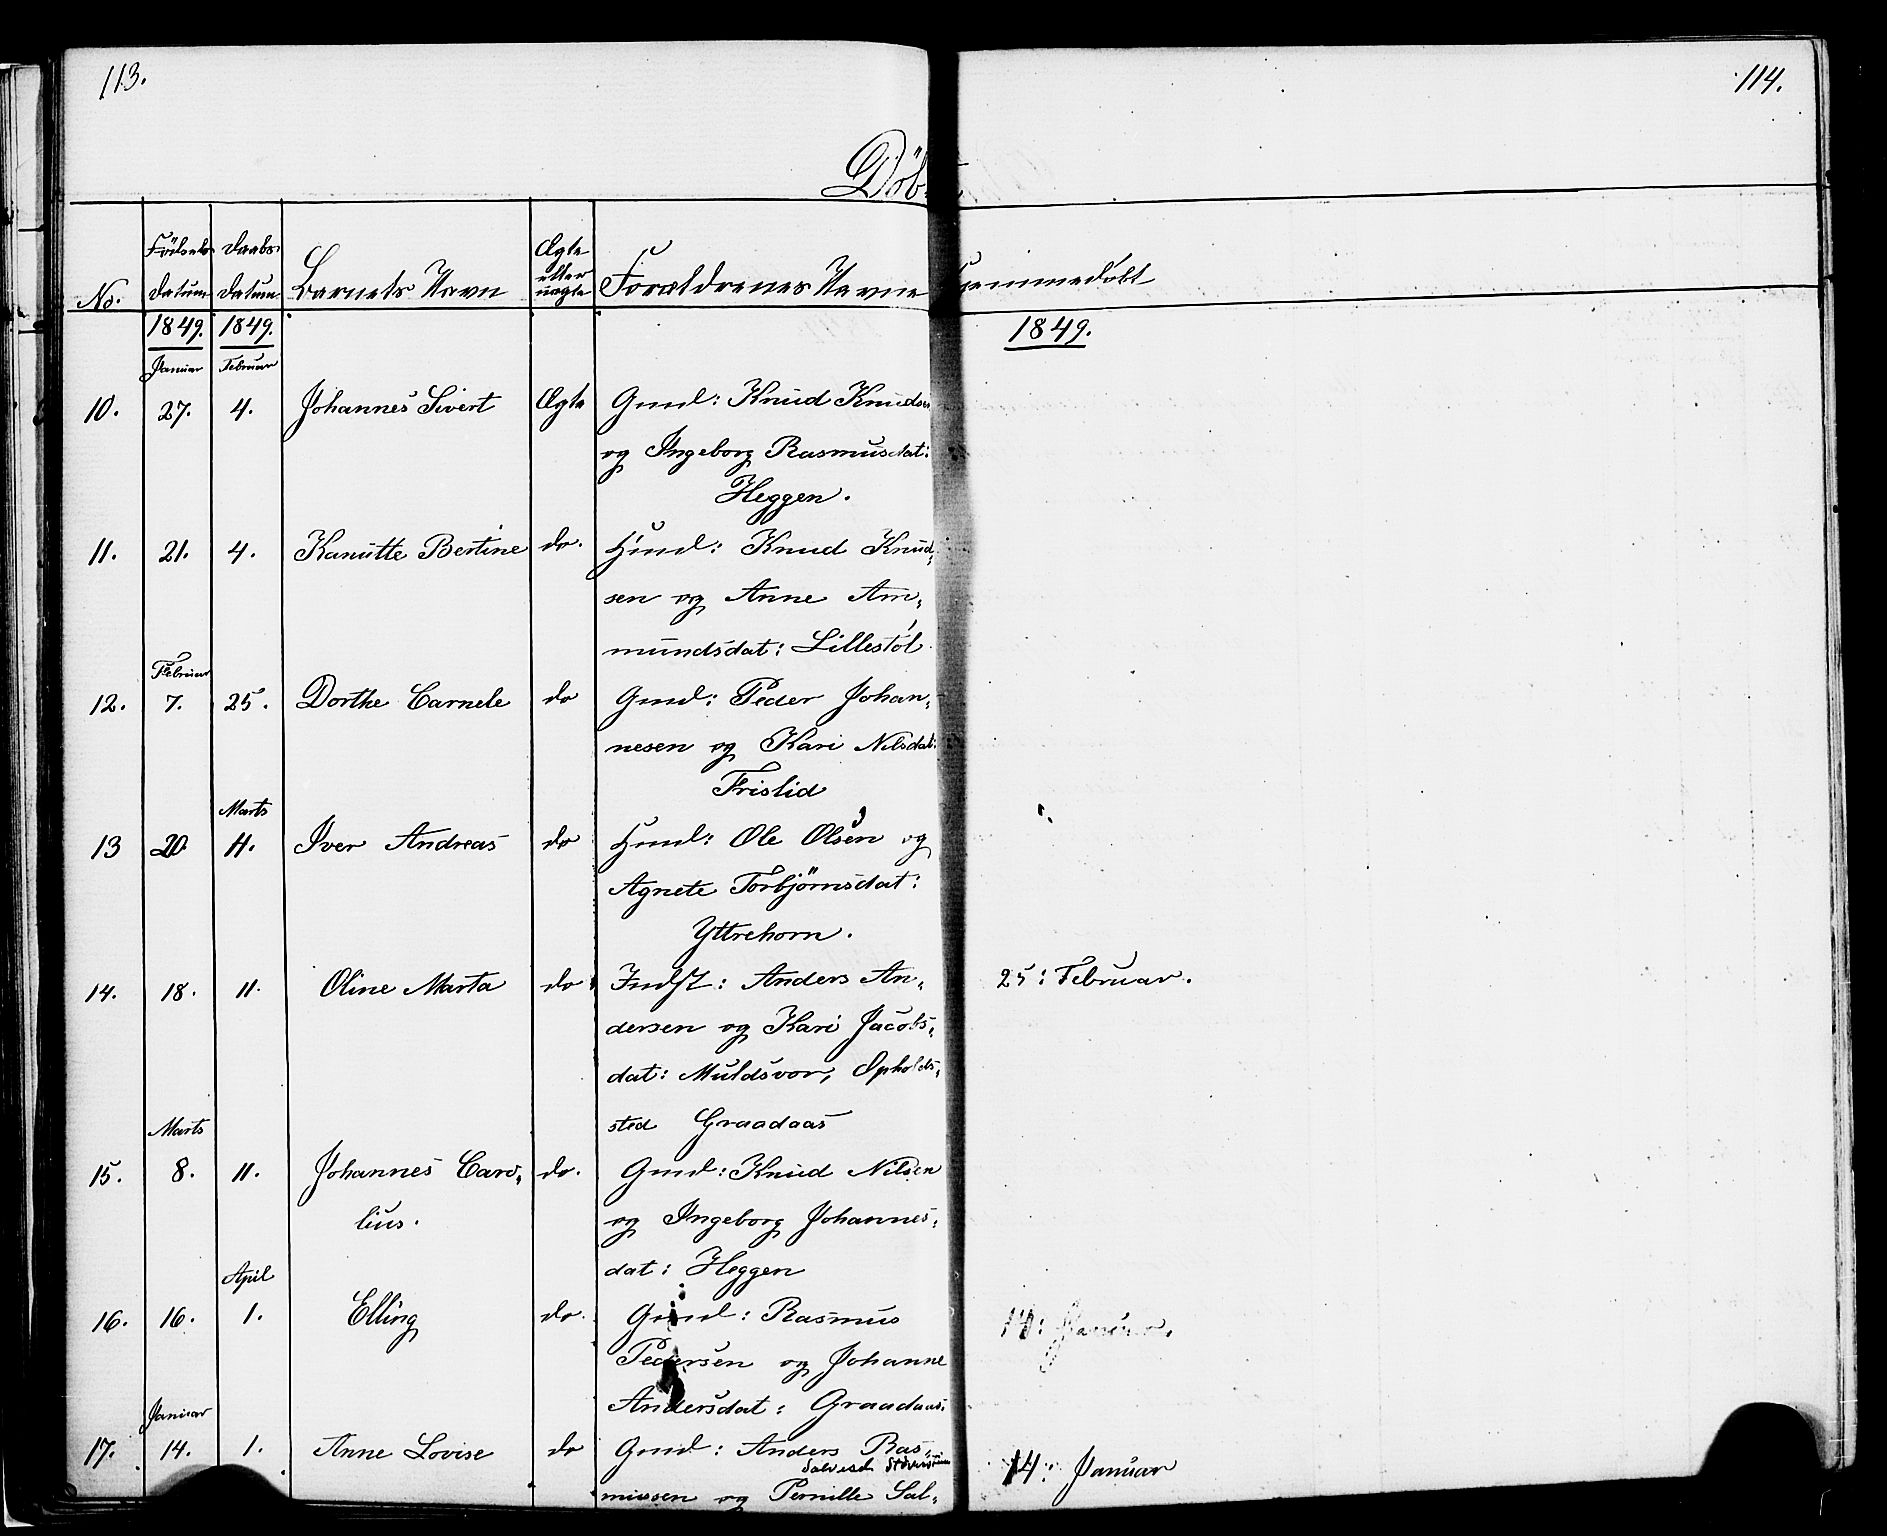 113.
114.
Døb
No.
Fødsels Datum
Daabs Datum
Barnets Navn
Ægte eller uægte
Forældrenes Navne
Hjemmedøbt
1849. 1849.
1849.
Januar Februar
10. 27. 4. Johannes Sivert Ægte Gmd: Knud Knudsen
og Ingeborg Rasmusdat:
Heggen.
11. 21. 4. Kanutte Bertine do. Hmd: Knud Knud,
sen og Anne Am,
mundsdat: Lillestøl
Februar
12. 7. 25. Dorthe Carnele do Gmd: Peder Johan,
nesen og Kari Nilsdat:
Frislid
Marts
13 20. 11. Iver Andreas do Hmd: Ole Olsen og
Agnete Torbjørnsdat:
Yttrehorn.
14. 18. 11. Oline Marta do Indst: Anders An, 25: Februar.
dersen og Kari Jacobs,
dat: Muldsvor, Opholds,
sted Graadaas
Marts
15. 8. 11. Johannes Caro, do. Gmd: Knud Nilsen
lius. og Ingeborg Johannes,
dat: Heggen
April
16. 16. 1. Elling do. Gmd: Rasmus Januar.
Pedersen og Johanne
Andersdat: Graadaas.
Januar
17. 14. 1. Anne Lovise do Gmd: Anders Ras, 14: Januar
mussen og Pernille Sal,